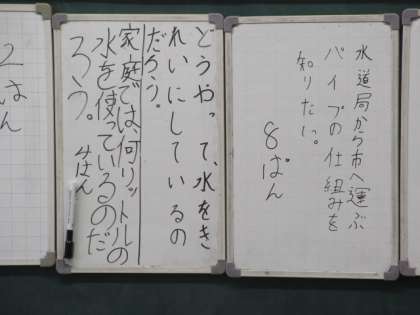 水道局から市へ運ぶ
パイプの仕組みを
知りたい。
8ぱん
どうやって、水をき
れいにしているの
だろう。
家庭では、何リットルの
水を使っているのだ
ろう。
4はん
2はん